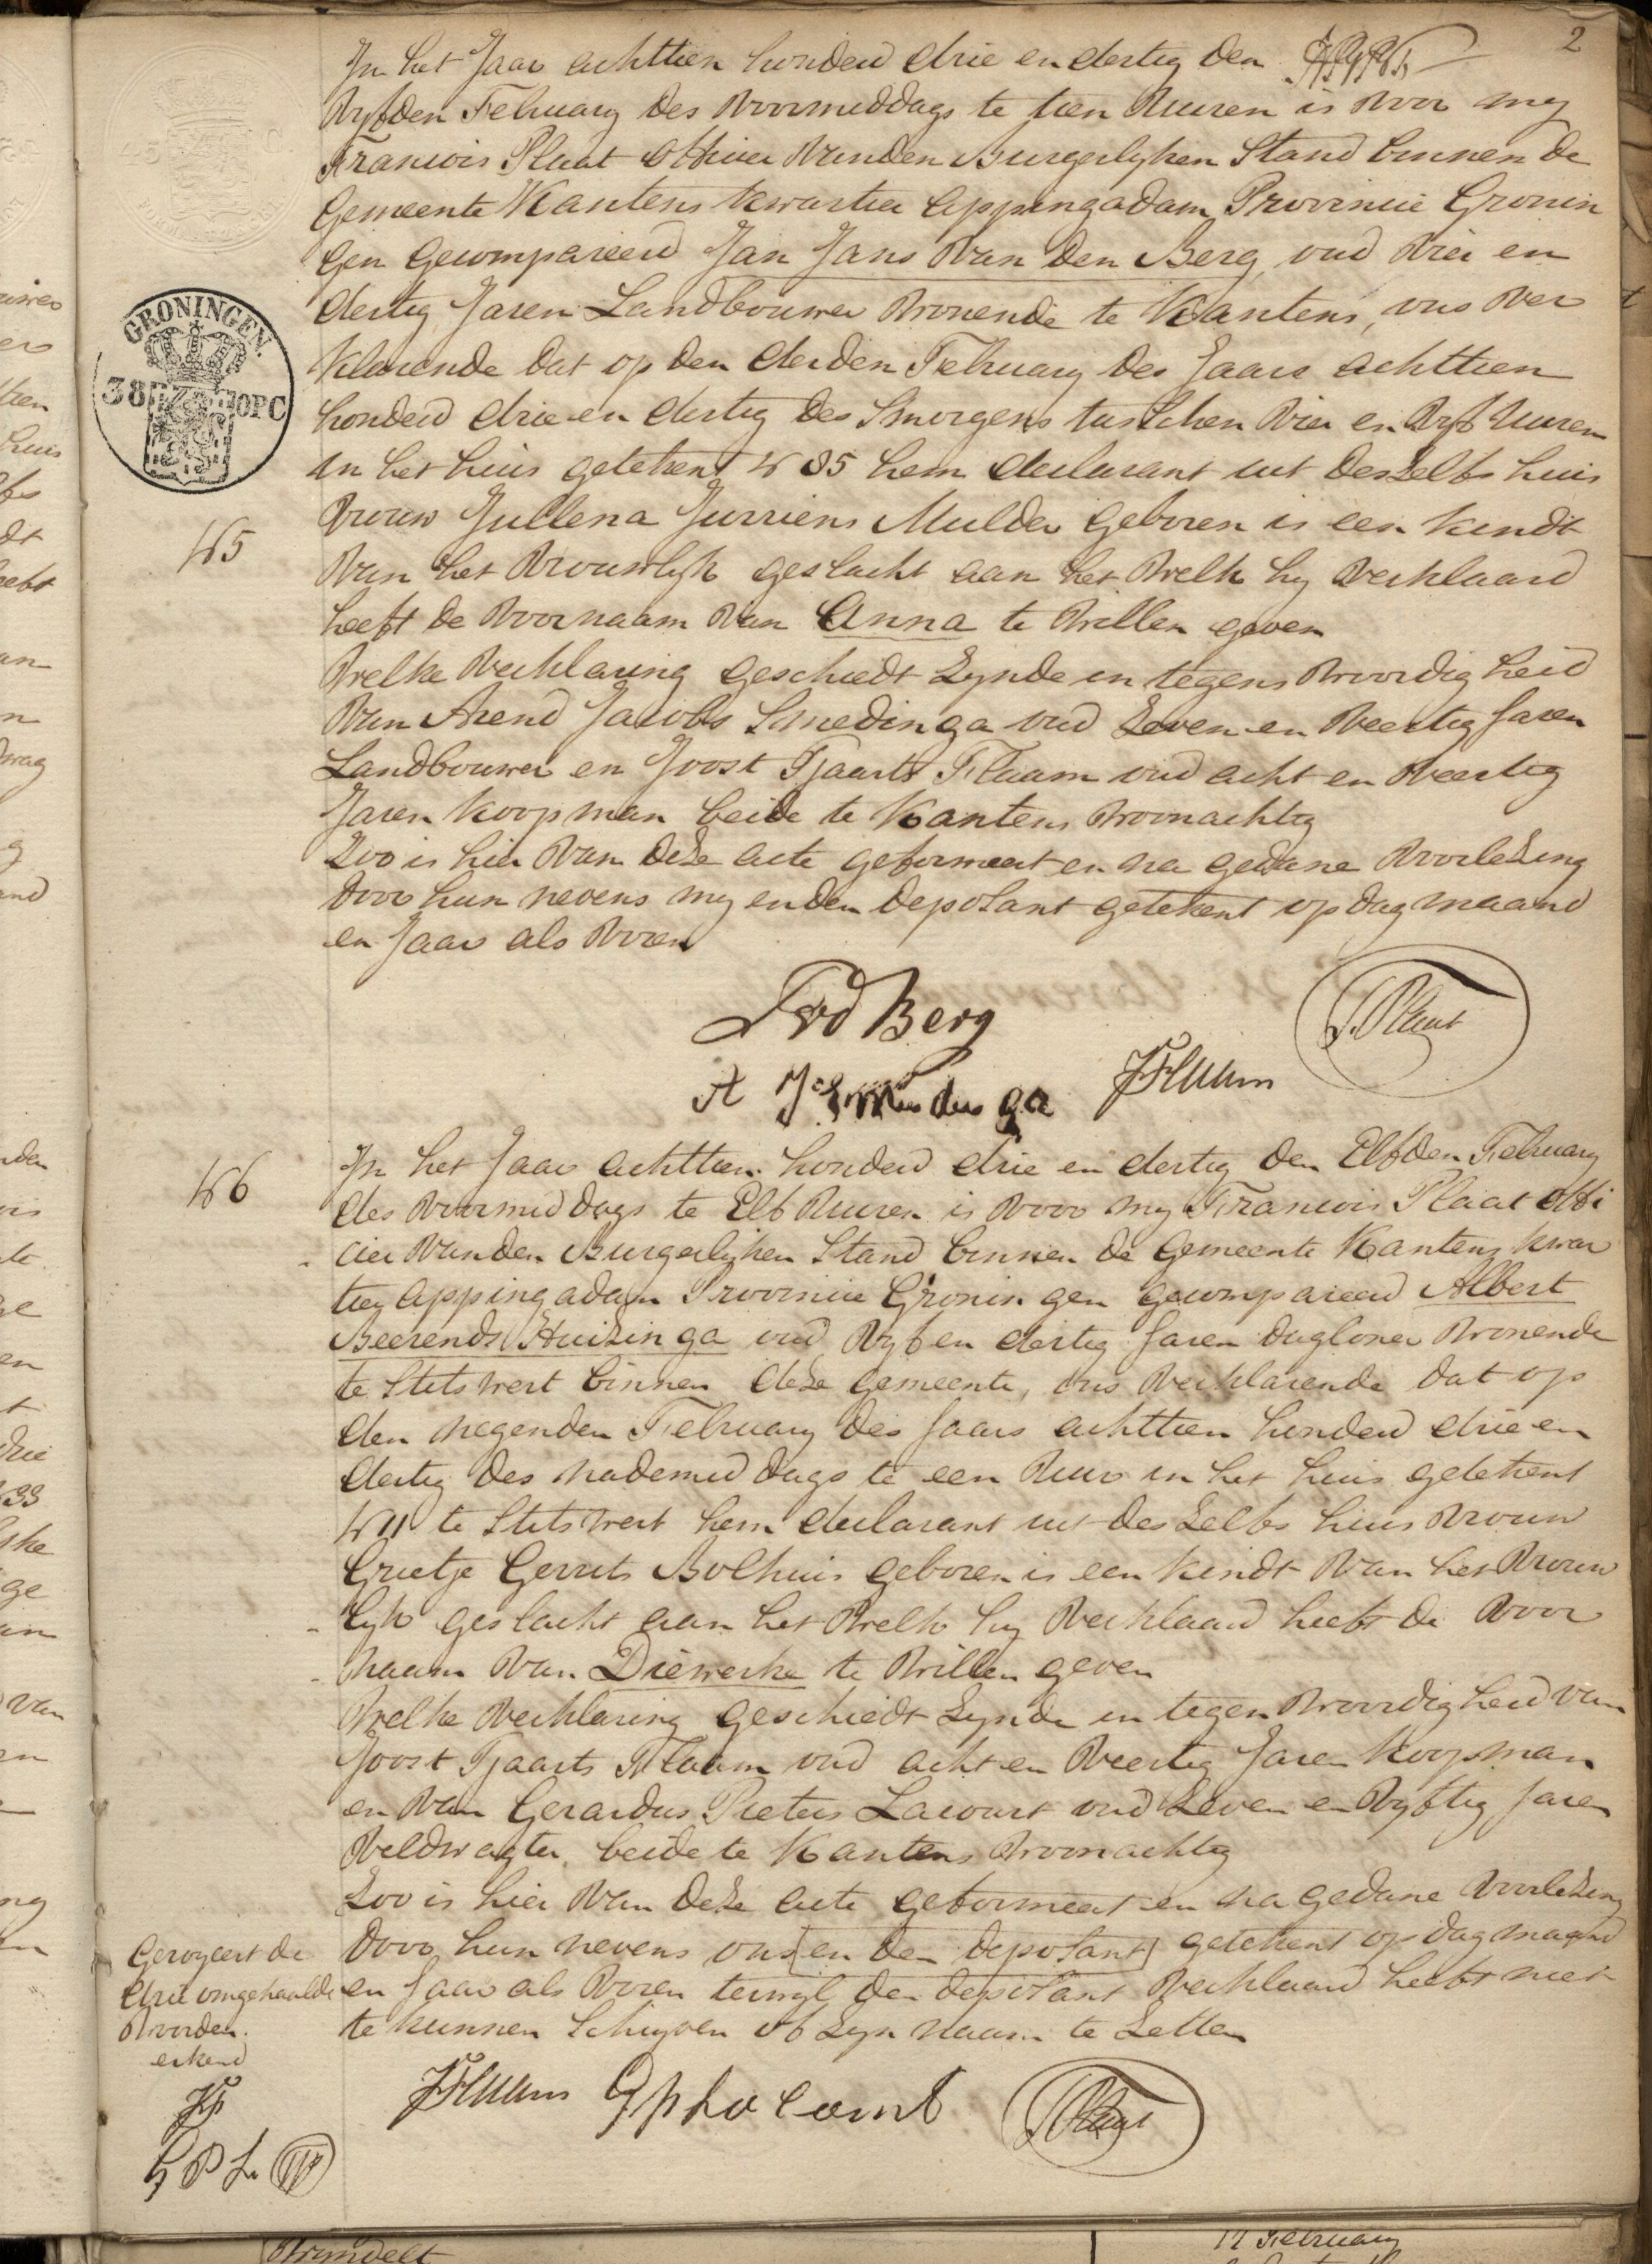 2
In het Jaar achttien honderd drie en dertig den
Vyfden February des Voormiddags te tien Uuren is Voor my
Francois Plaat Officier Vanden Burgerlyken Stand binnen de
Gemeente Kantens kwartier Appingadam Provincie Gronin
gen Gecompareerd Jan Jans Van den Berg oud Vier en
dertig Jaren Landbouwer Wonende te Kantens, ons Ver
klarende dat op den derden February des Jaars achttien
honderd drie en dertig des Smorgens tusschen Vier en Vyf Uuren
in het huis getekent N 35 hem declarant uit deszelfs huis
Vrouw Jullena Jurriens Mulder geboren is een kindt
Van het Vrouwlyk geslacht aan het Welk hy Verklaard
heeft de Voornaam Van Anna te Willen geven
Welke Verklaring geschiedt Zynde in tegens Woordigheid
Van Arend Jacobs Smedinga oud Zeven en Veertig Jaren
Landbouwer en Joost Tjaarts Flaam oud acht en Veertig
Jaren koopman beide te Kantens Woonachtig
Zoo is hier Van deze acte geformeert en na gedane Voorlezing
door hun nevens my en den deposant getekent op dag maand
en Jaar als Voren
GRONINGEN.
38 OPC
N5
JvdBerg
F. Plaat
A J Smedinga
JFlaam
N6
In het Jaar achttien honderd drie en dertig den Elfden February
des Voormiddags te Elf Uuren is Voor my Francois Plaat Offi
cier Vanden Burgerlyken Stand binnen de Gemeente Kantens kwar
tier Appingadam Provincie Groningen gecompareerd Albert
Beerends Huizinga oud Vyf en dertig Jaren dagloner Wonende
te Stitswert binnen deze Gemeente, ons Verklarende dat op
den negenden February des Jaars achttien honderd drie en
dertig des nademiddags te een Uur in het huis getekent
N 11 te Stitswert hem declarant uit deszelfs huis Vrouw
Grietje Gerrits Bolhuis geboren is een kindt Van het Vrouw
lyk geslacht aan het Welk hy Verklaard heeft de Voor
naam Van Diewerke te Willen geven
Welke Verklaring geschiedt Zynde in tegen Woordigheid van
Joost Tjaarts Flaam oud acht en Veertig Jaren koopman
en Van Gerardus Pieters Lacourt oud Zeven en Vyftig Jaren
Veldwagter beide te Kantens Woonachtig
Zoo is hier Van deze acte geformeert en na gedane Voorlezing
door hun nevens ons [en den deposant] getekent op dag maand
en Jaar als Voren terwyl den deposant Verklaard heeft niet
te kunnen Schryven of Zyn naam te Zetten
Geroyeert de
drie omgehaalde
Woorden.
erkend
JF
GPL FP
JFlaam GPLacourt F Plaat
17 February